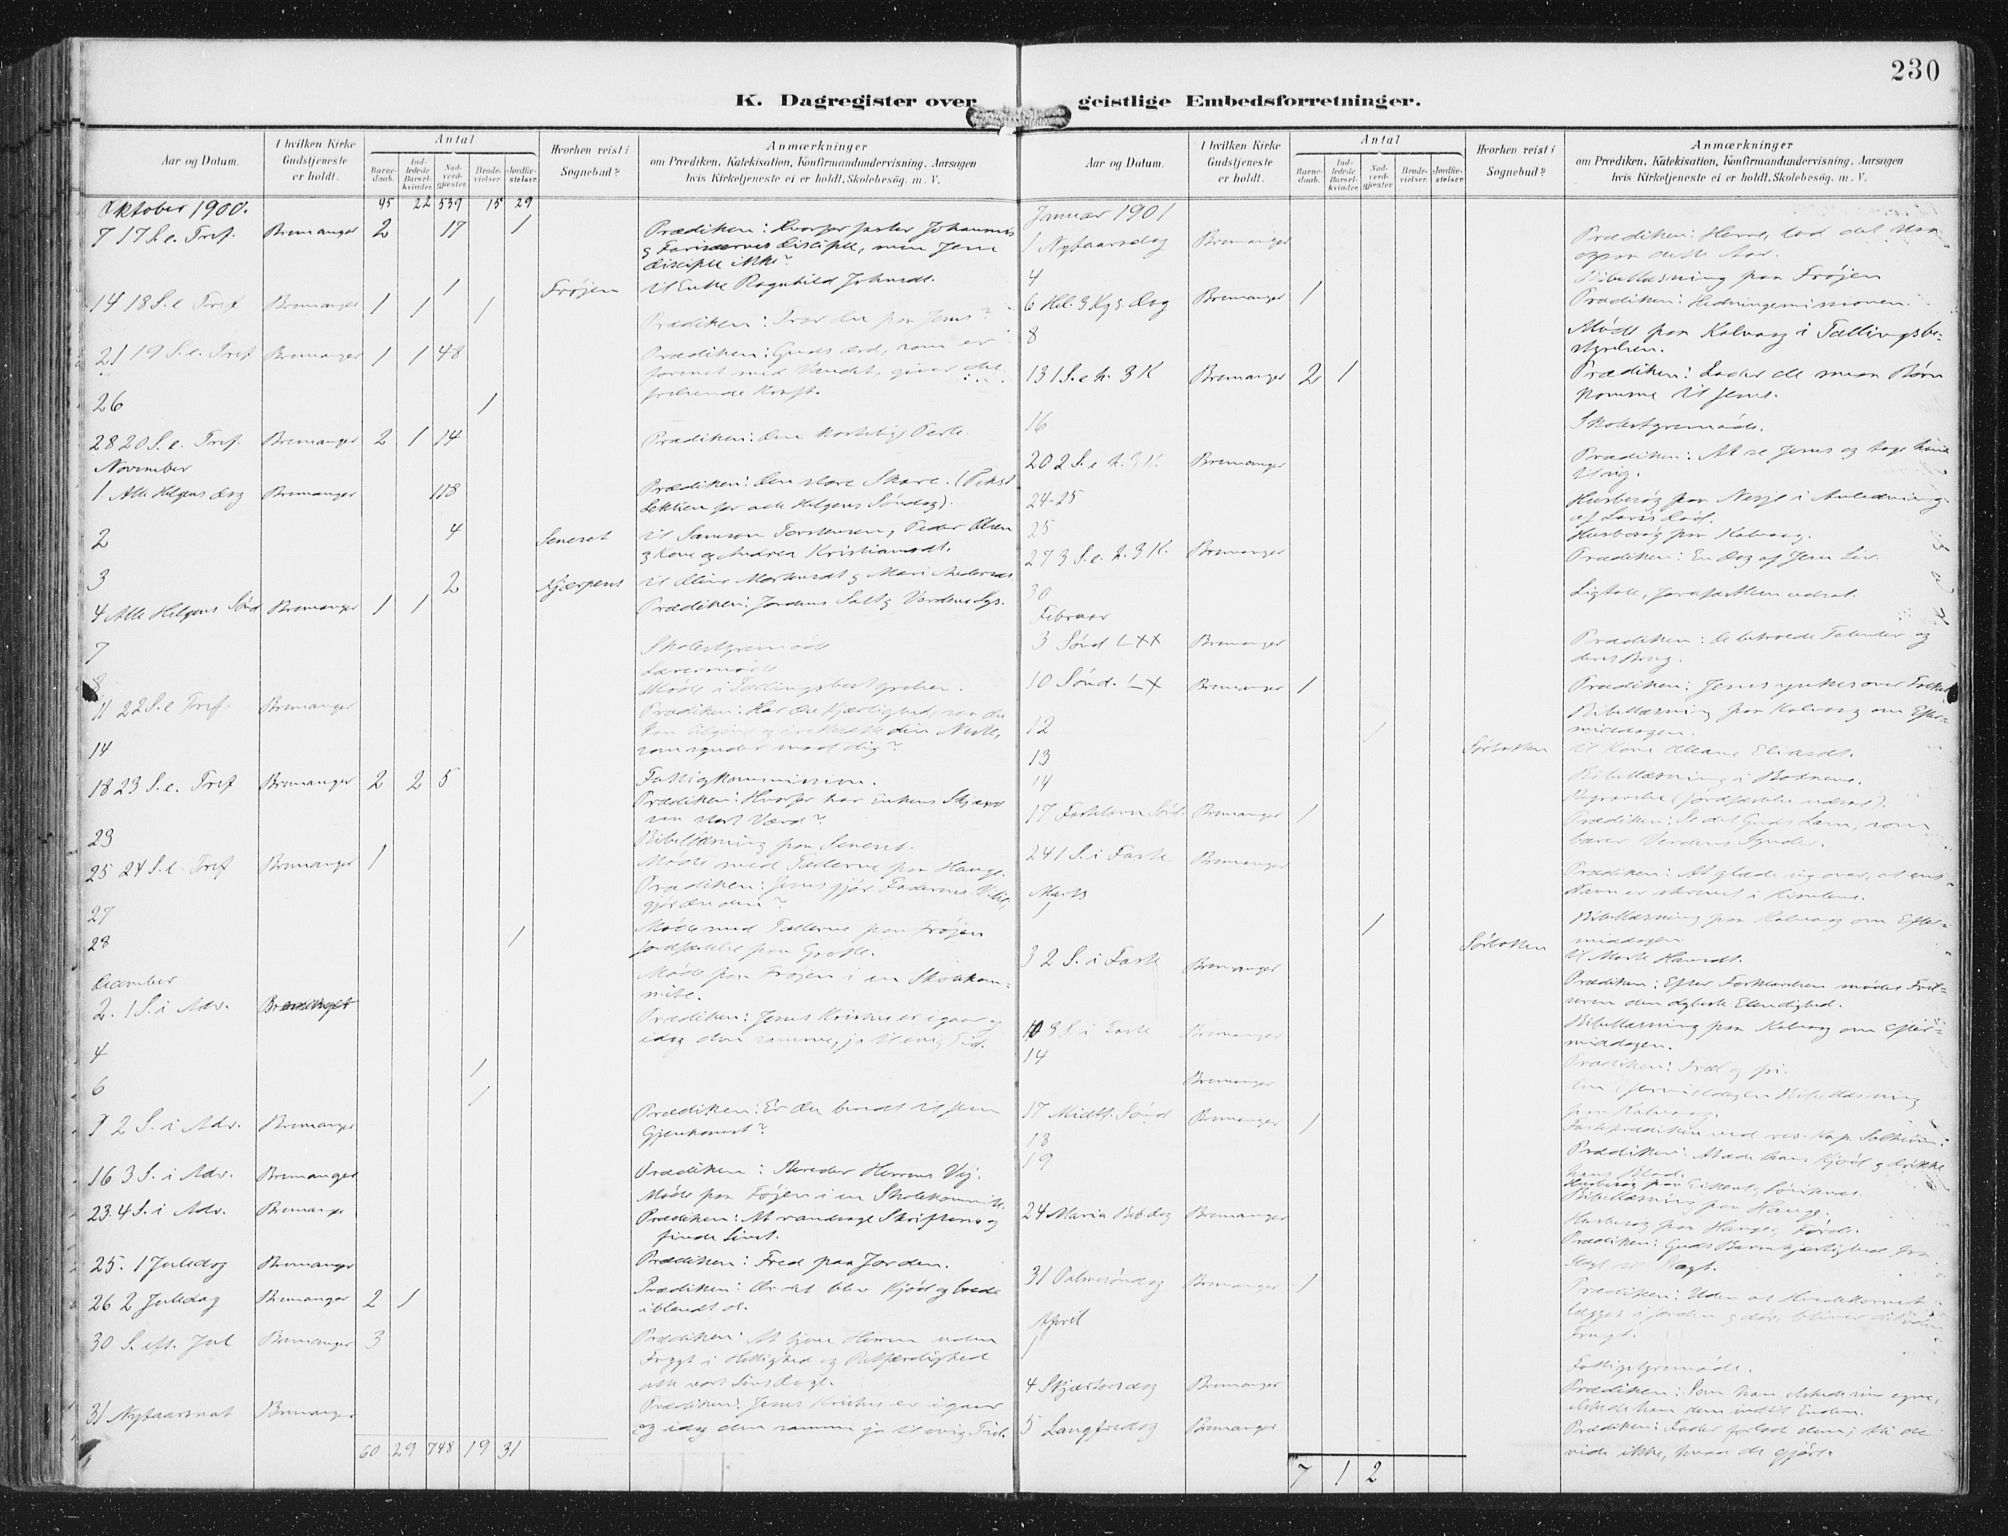 230
K. Dagregister over geistlige Embedsforretninger.
Aar og Datum.
I hvilken Kirke Gudstjeneste er holdt.
Antal
Barnedaab.
Indledede Barselkvinder.
Nadverdgjester
Brudevielser.
Jordfæstelser.
Hvorhen reist i Sognebud?
Anmærkninger
om Prædiken, Katekisation, Konfirmandundervisning, Aarsagen
hvis Kirketjeneste ei er holdt, Skolebesøg, m. V.
Oktober 1900. 45 22 539 15 29
7 17 S. e. Tref. Bremanger 2 17 1 Prædiken: Hvorfor faster Johannes
og Farisæernes Disciple, men Jesu
Disciple ikke?
1 Frøjen til Enke Ragnhild Johnsdt.
14 18 S. e. Tref Bremanger 1 1 1
Prædiken: Tror du paa Jesus?
21 19 S. e. Tref Bremanger 1 1 48 Prædiken: Guds ord, som er
forenet med Vandet, giver det
frelsende Kraft.
26 1
28 20 S. e. Tref. Bremanger 2 1 14 Prædiken: Den kostelige Perle.
November
1 Alle Helgens Dag Bremanger 118 Prædiken: Den store Skare. (Tekst
Lektien for alle Helgens Søndag).
2 4 Seneset til Samson Torstensen, Peder Olsen
og Kone og Andrea Kristiansdt.
3 2 til Oline Markusdt og Mari Andersdt
4 Alle Helgens Sønd Bremanger 1 1 Prædiken: Jordens Salt og Verdens Lys.
7 Skolestyremøde
Lærermøde
8 Møde i Tællingsbestyrelsen.
11 22 S. e Tref. Bremanger Prædiken: Har du Kjærlighed, saa du
kan tilgive og din Næste,
som synder mod dig?
14
18 23 S. e. Tref Bremanger 2 2 5 Fattigkommission.
Prædiken: Hvorfor har Enkens Skjærv
saa stort Værd?
23 Bibellæsning paa Seneset.
25 24 S. e. Tref Bremanger 1 Møde med Tællerne paa Hauge.
Prædiken: Jesus gjør Faderens Vilje,
gjør du den?
27 Møde med Tællerne paa Frøjen
28 1 Jordfæstelse paa Grotle.
December Møde paa Frøjen i en Skolekom-
mite.
2. 1 S. i Adv. Prædiken: Jesus Kristus er igaar og
idag den samme, ja til evig Tid.
4 1
6 1
9 2 S. i Adv. Bremanger Prædiken: Er du bundet til Jesu
16 3 S. i Adv. Bremanger Prædiken: Bereder Herrens Vej.
Møde paa Frøjen i en Skolekommite.
23. 4 S. i Adv. Bremanger Prædiken: At randsage Skrifterne og
finde Livet.
25. 1 Juledag Bremanger Prædiken: Fred paa Jorden.
26 2 Juledag Bremanger 2 1 Prædiken: Ordet blev Kjød og boede
iblandt os.
30 S. eft. Jul Bremanger 3 Prædiken: At tjene Herren uden
Frygt i Hellighed og Retfærdighed
alle vort Livs Dage.
31 Nytaarsnat Bremanger Prædiken: Jesus Kristus er igaar
og idag den samme ja til evig Tid.
60 29 748 19 31
Aar og Datum.
I hvilken Kirke Gudstjeneste er holdt.
Antal
Barnedaab.
Indledede Barselkvinder.
Nadverdgjester
Brudevielser.
Jordfæstelser.
Hvorhen reist i Sognebud?
Anmærkninger
om Prædiken, Katekisation, Konfirmandundervisning, Aarsagen
hvis Kirketjeneste ei er holdt, Skolebesøg, m. V.
Januar 1901
1 Nytaarsdag Bremanger Prædiken: Herre, lad det staa
ogsaa dette Aar.
4 Bibellæsning paa Frøjen
6 Hel. 3 Kgs. Dag Bremanger 1 Prædiken: Hedningemissionen.
8 Møde paa Kalvaag i Tællingsbe-
styrelsen.
13 1 S. e. h. 3 K Bremanger 2 1 Prædiken: Lader de smaa Børn
komme til Jesus.
16 Skolestyremøde.
20 2 S. e. h. 3 K. Bremanger Prædiken: At se Jesus og tage
til sig.
24-25 Husbesøg paa Nesje i Anledning
af Død.
25 Husbesøg paa Kalvaag.
27 3 S. e. h. 3 K. Bremanger Prædiken: En Dag af Jesu Liv.
30 Ligtale, Jordfæstelsen udsat.
Februar
3 Sønd LXX Bremanger Prædiken: De betroede Talenter og
deres Brug.
10 Sønd. LX Bremanger 1 Prædiken: Jesus ynkes over Folket
Bibellæsning paa Kalvaag om Efter-
middagen.
12 1
13 Sørbotten til Kone Eliasdt.
14 Bibellæsning i Botnene.
Begravelse (Jordfæstelse udsat).
17 Fastelavns Sønd. Bremanger 1 Prædiken: Se det Guds Lam, som
bærer Verdens Synder.
24 1 S. i Faste Bremanger
Prædiken: At glæde sig over, at ens
Navn er skrevet i Himlene.
Marts
1 1 Sørbotten Bibellæsning paa Kalvaag om Efter-
middagen
til Marte Hansdt.
3 2 S. i Faste Bremanger
Prædiken: Efter Forklarelsen møder Frel-
seren den dybeste Elendighed.
10 3 S. i Faste Bremanger Bibellæsning paa Kalvaag om Efter-
middagen.
14 Prædiken: Træl og fri.
Bremanger Om Eftermiddagen Bibellæsning
paa Kalvaag.
17 Midtf. Sønd Bremanger 1 Fasteprædiken ved res. Kap.
18 Prædiken: At æde hans Kjød og drikke
hans Blod.
19 Husbesøg paa
Bibellæsning paa Hauge.
24 Maria Beb dag Bremanger Husbesøg paa Hauge, Førde.
Prædiken: Guds Barmhjertighed fra
Slægt til Slægt.
31 Palmesøndag Bremanger 1 Prædiken: Uden at Hvedekornet
lægges i Jorden og dør, bliver det uden
Frugt.
April
1 Fattigstyremøde.
4 Skjærtorsdag Bremanger Prædiken: Som han elskede sine egne,
elskede han dem indtil Enden.
5 Langfredag Bremanger Prædiken: Fader forlad dem; thi de
vide ikke, hvad de gjøre.
7 1 2